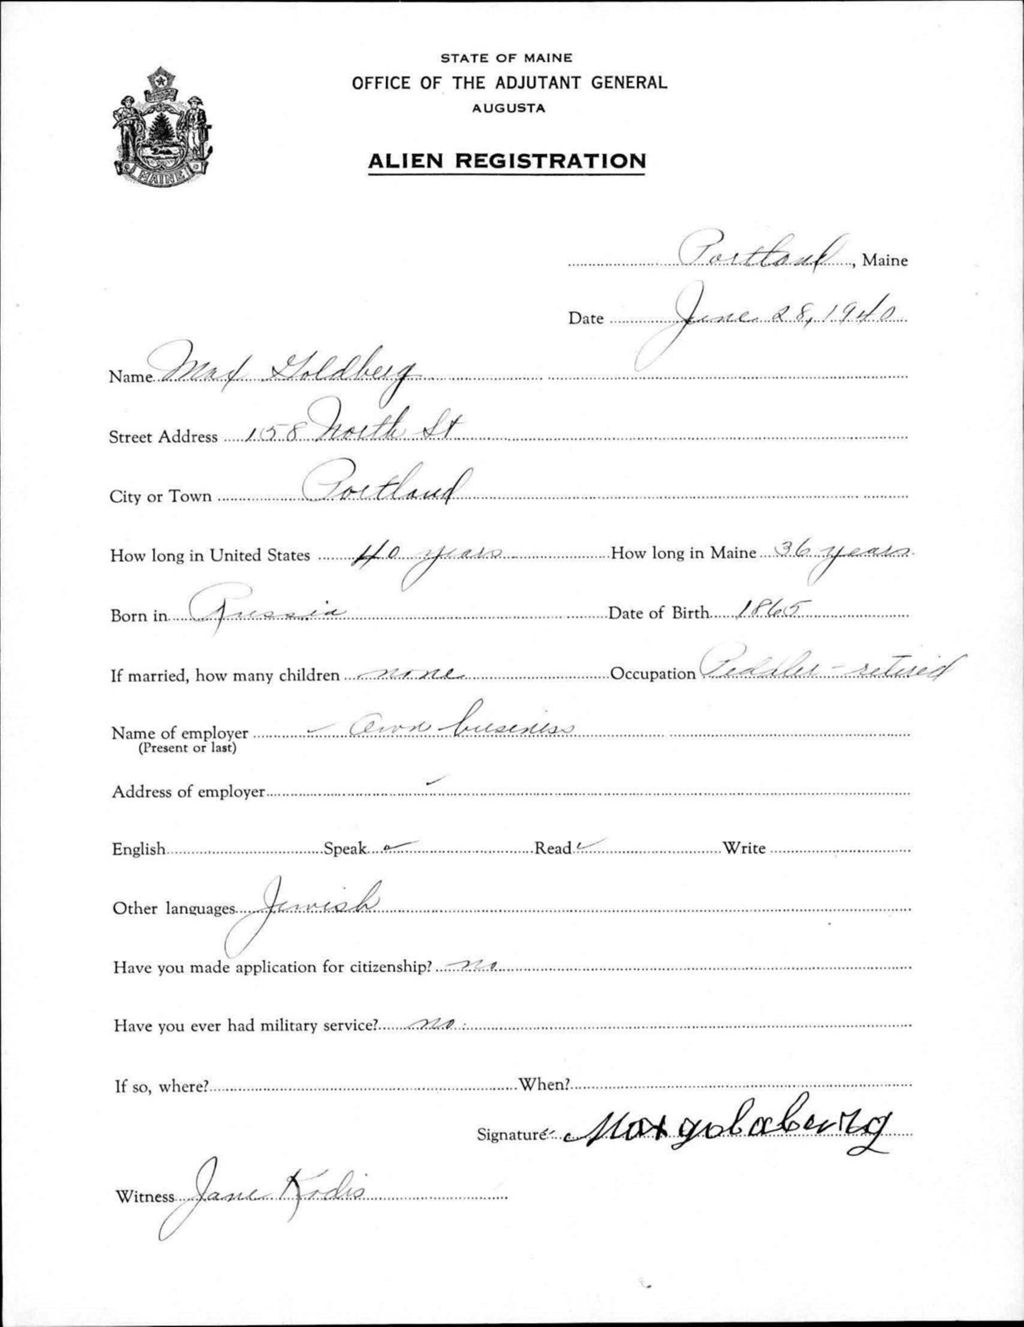 STATE OF MAINE
OFFICE OF THE ADJUTANT GENERAL
AUGUSTA
ALIEN REGISTRATION
MAINE
Portland, Maine
Date June 28, 1940
Name Max Goldberg
Street Address 158 North St
City or Town Portland
How long in United States 40 years How long in Maine 36 years
Born in Russia Date of Birth 1865
If married, how many children none Occupation Peddler - retired
Name of employer Own business
(Present or last)
Address of employer
English Speak ✓ Read ✓ Write
Other languages Jewish
Have you made application for citizenship? no
Have you ever had military service? no
If so, where? When?
Signature Max goldberg
Witness Jane Kodis